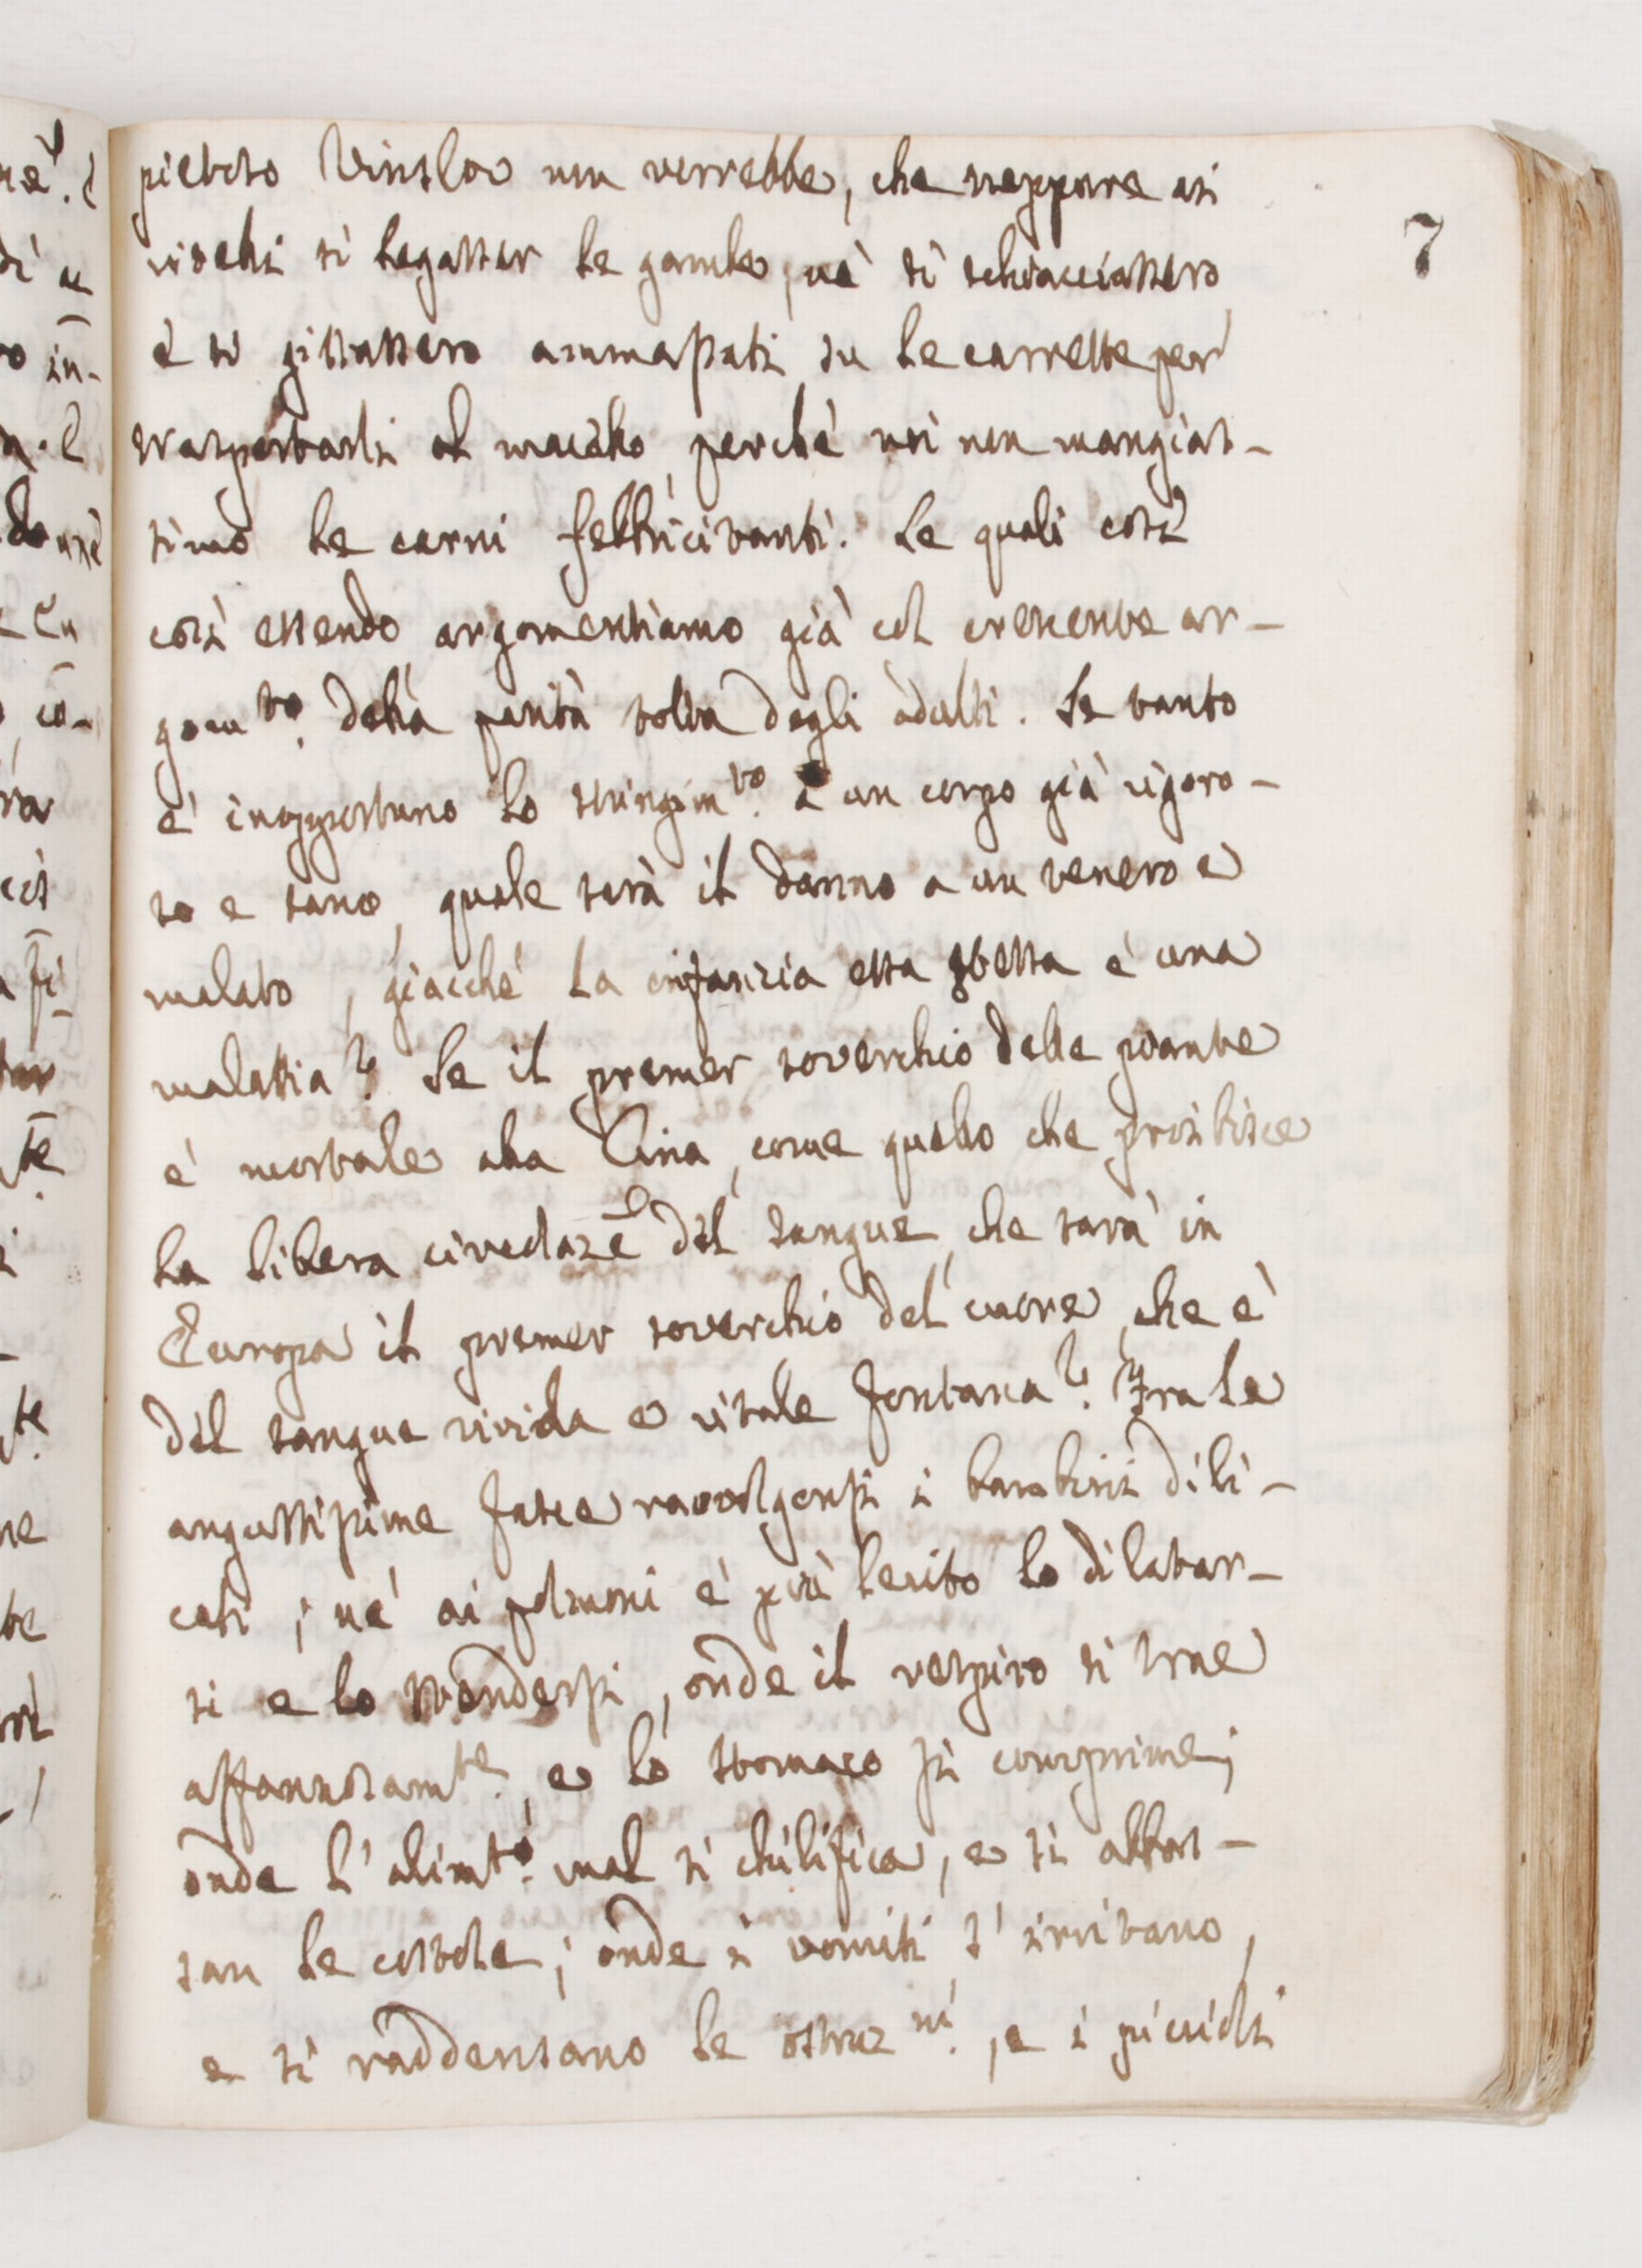 pietoso Vinslou non vorrebbe, che neppure asi
vitelli si legasser le gambe, nè si schiacciassero
e si gittassero ammassati su le carrette per
trasportarli al macello, perchè noi non mangias-
simo le carni febbricitanti. Le quali cose
così essendo argomentiamo già col crescente ar-
gom.to della parità tolta degli adulti. Se tanto
è inopportuno lo stringim.to a un corpo già vigoro-
so e sano, quale sarà il danno a un tenero e
malato, giacchè la infanzia essa stessa è una
malattia? Se il premer soverchio delle piante
è mortale alla Cina, come quello che proibisce
la libera circolazē del sangue, che sarà in
Europa il premer soverchio del cuore, che è
del sangue vivida e vitale fontana? Fra le
angustissime fasce ravvolgonsi i bambini dili-
cati; nè ai polmoni è più lecito lo dilatar-
si e lo stendersi, onde il respiro si trae
affannosam.te, e lo stomaco si comprime;
onde l'alim.to mal si chilifica, e si abbas-
san le costole; onde i vomiti s'irritano,
e si raddensano le ostruz.ni, e i piccioli
7